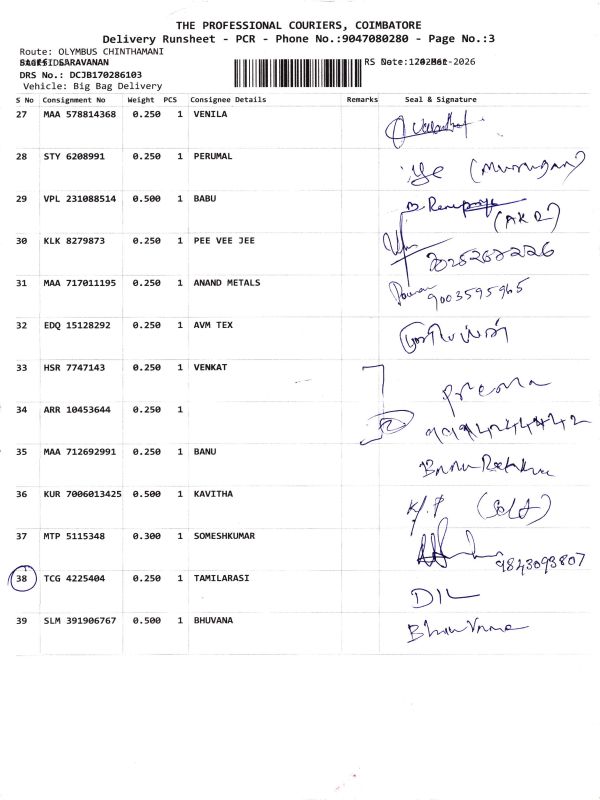 THE PROFESSIONAL COURIERS, COIMBATORE
Delivery Runsheet - PCR - Phone No.:9047080280 - Page No.:3
Route: OLYMBUS CHINTHAMANI
SARAVANAN
DRS No.: DCJB170286103
Vehicle: Big Bag Delivery
S No Consignment No Weight PCS Consignee Details Remarks Seal & Signature
27 MAA 578814368 0.250 1 VENILA
28 STY 6208991 0.250 1 PERUMAL (Murugan)
29 VPL 231088514 0.500 1 BABU
30 KLK 8279873 0.250 1 PEE VEE JEE
31 MAA 717011195 0.250 1 ANAND METALS 9003595965
32 EDQ 15128292 0.250 1 AVM TEX
33 HSR 7747143 0.250 1 VENKAT Prema
34 ARR 10453644 0.250 1
35 MAA 712692991 0.250 1 BANU Banu
36 KUR 7006013425 0.500 1 KAVITHA (Self)
37 MTP 5115348 0.300 1 SOMESHKUMAR 9843093807
38 TCG 4225404 0.250 1 TAMILARASI DIL
39 SLM 391906767 0.500 1 BHUVANA Bhuvana